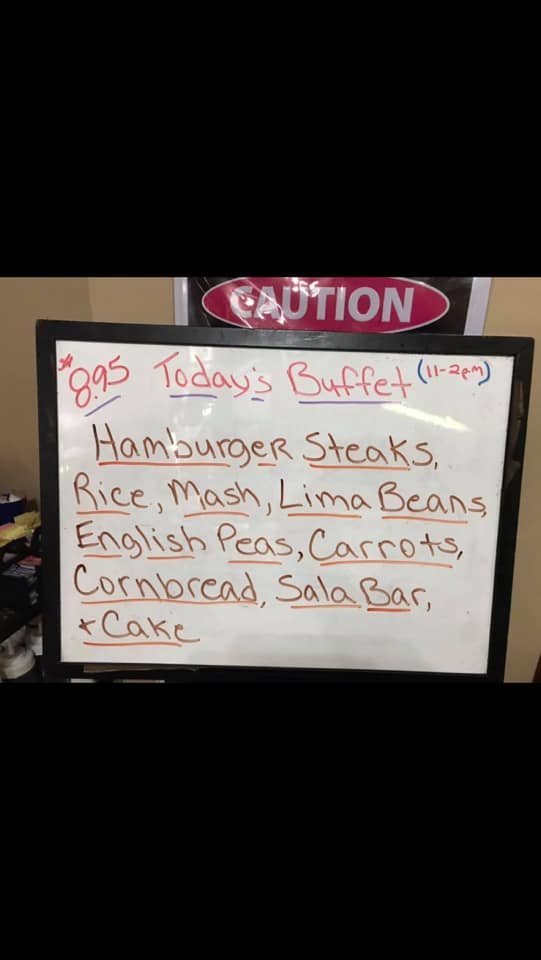 CAUTION
$8.95 Today's Buffet (11-2pm)
Hamburger Steaks,
Rice, Mash, Lima Beans,
English Peas, Carrots,
Cornbread, Sala Bar,
+ Cake